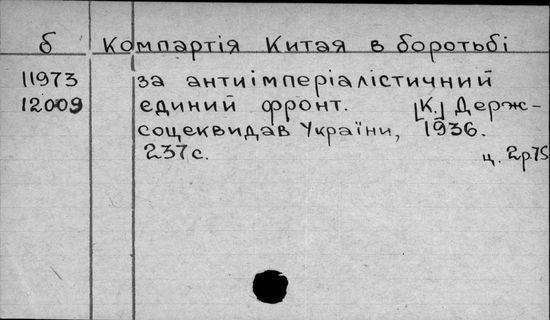 б Компартія Китая в боротьбі
11973 за антиімперіалістичний
12009 единий фронт. [К.] Держ-
соцеквидав України, 1936.
237 с. ц. 2р.75